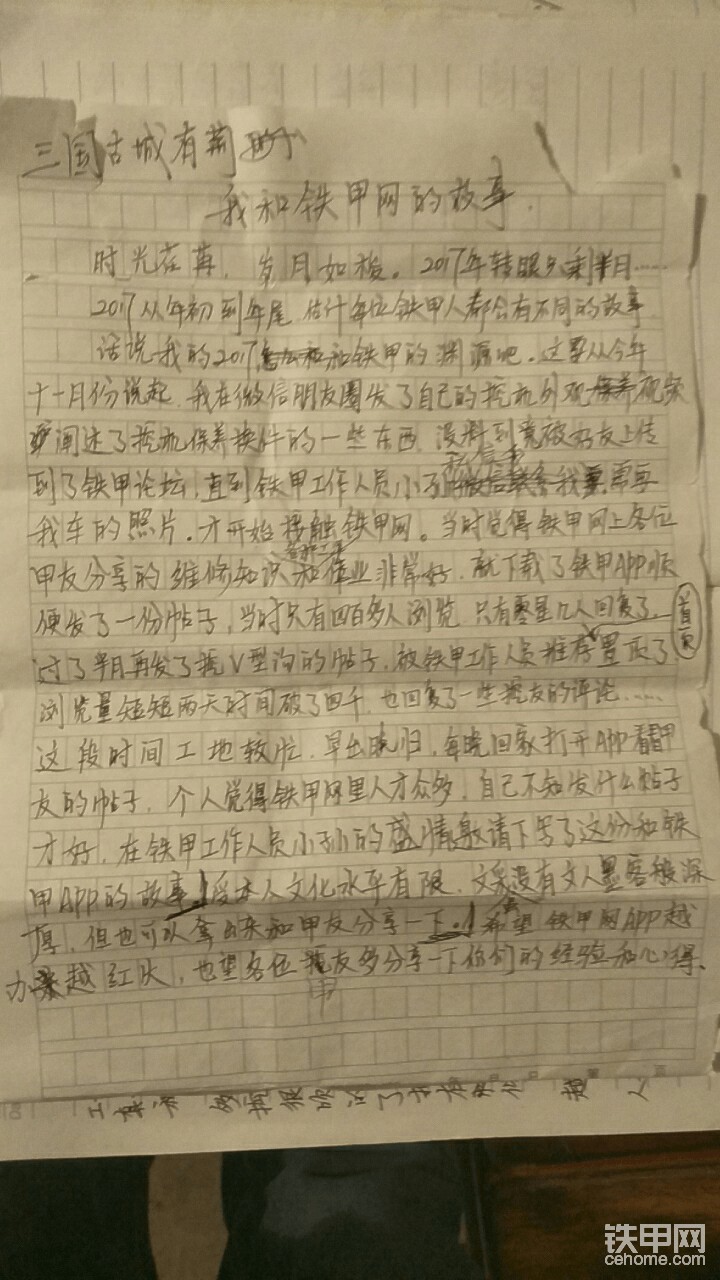 三国古城有荆
我和铁甲网的故事.
时光荏苒,岁月如梭。2017年转眼只剩半月……
2017从年初到年尾,估计每位铁甲人都会有不同的故事
话说我的2017和铁甲的渊源吧。这要从今年
十一月份说起,我在微信朋友圈发了自己的挖机外观视频
阐述了挖机保养换件的一些东西,没料到竟被好友上传
私信
到了铁甲论坛,直到铁甲工作人员小孙我需要
我车的照片。才开始接触铁甲网。当时觉得铁甲网上各位
甲友分享的维修知识和作业非常好,就下载了铁甲APP顺
便发了一份帖子,当时只有四百多人浏览,只有零星几人回复了.
首页
过了半月再发了挖V型沟的帖子,被铁甲工作人员推荐置顶了
浏览量短短两天时间破了四千,也回复了一些挖友的评论……
这段时间工地较忙,早出晚归,每晚回家打开APP看甲
友的帖子,个人觉得铁甲网里人才众多,自己不知发什么帖子
才好,在铁甲工作人员小孙的盛情邀请下写了这份和铁
甲APP的故事!本人文化水平有限,文采没有文人墨客般深
厚,但也可以拿出来和甲友分享一下.!希望铁甲网APP越
办越红火,也望各位友多分享一下你们的经验和心得、
甲
铁甲网
cehome.com